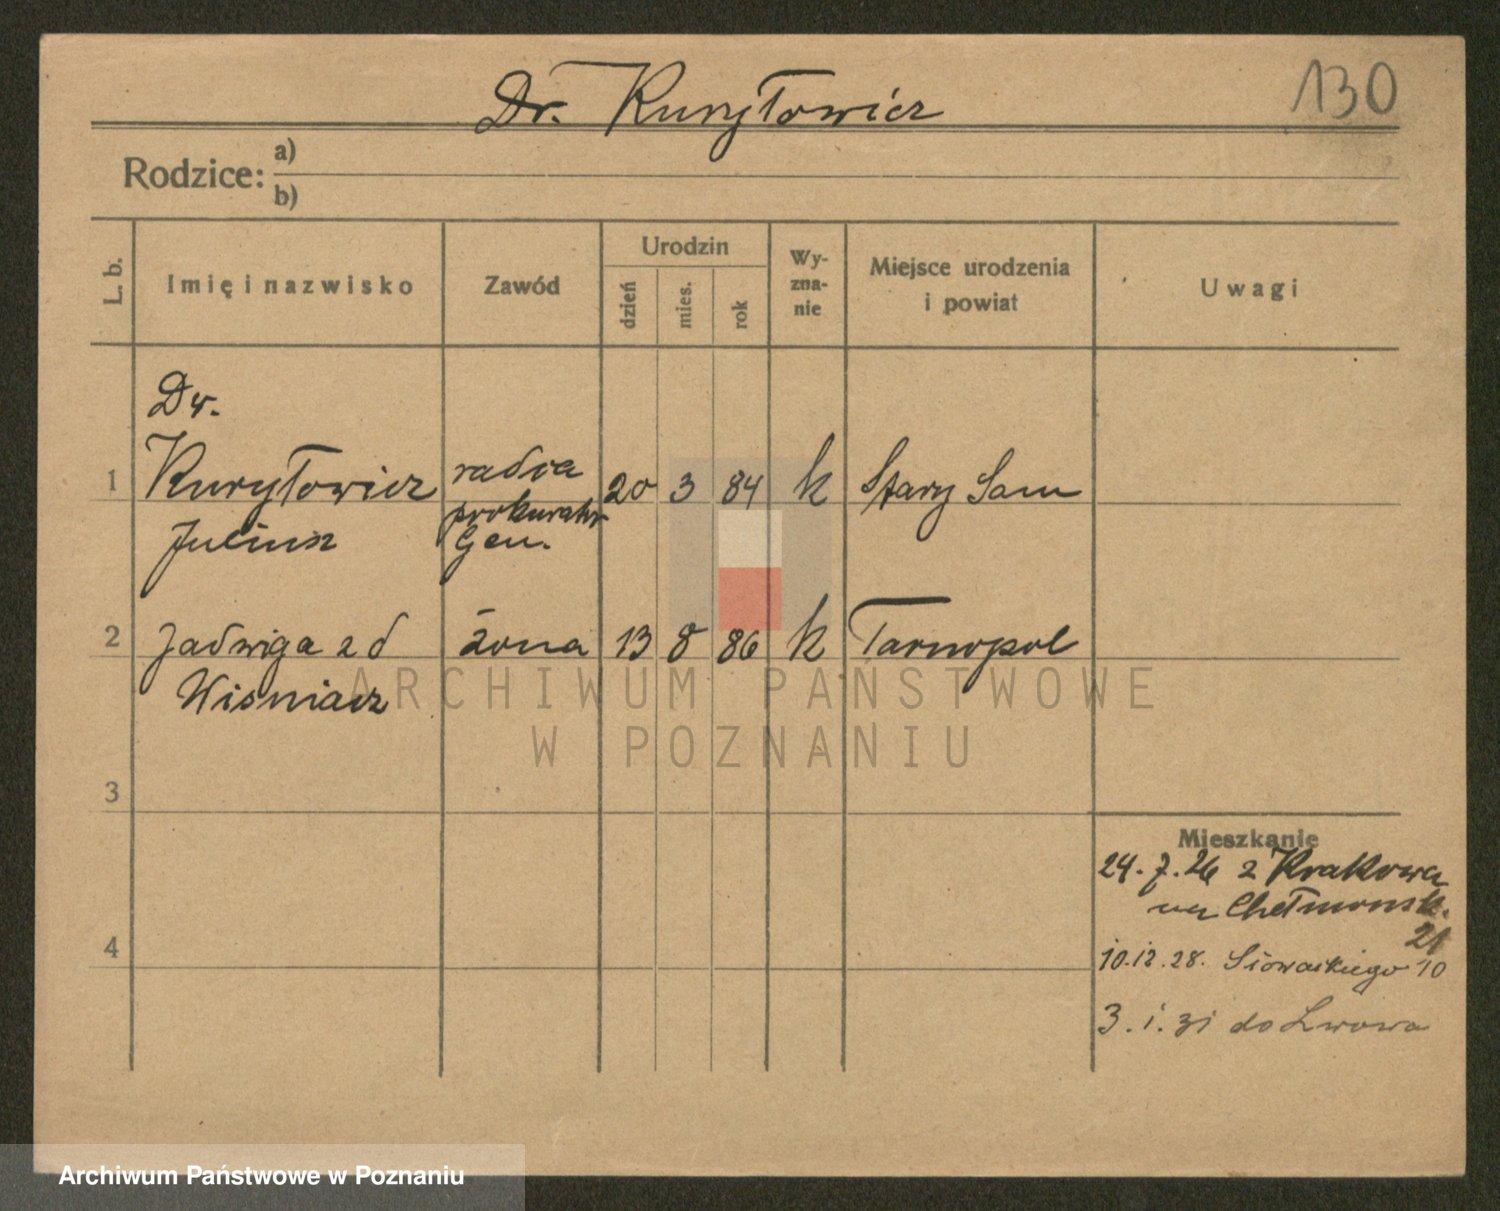 Dr. Kuryłowicz
130
Rodzice: a)
b)
L. b.
Imię i nazwisko
Zawód
Urodzin
dzień
mies.
rok
Wy-
zna-
nie
Miejsce urodzenia
i powiat
Uwagi
Dr.
1 Kuryłowicz radca 20 3 84 k Stary Sam
Juliusz prokurator
Gen.
2 Jadwiga z d żona 13 8 86 k Tarnopol
Wiśniacz
3
Mieszkanie
24.7.26 z Krakowa
na Chełmonsk.
21
4
10.12.28. Słowackiego 10
3.1.31 do Lwowa
ARCHIWUM PAŃSTWOWE
W POZNANIU
Archiwum Państwowe w Poznaniu